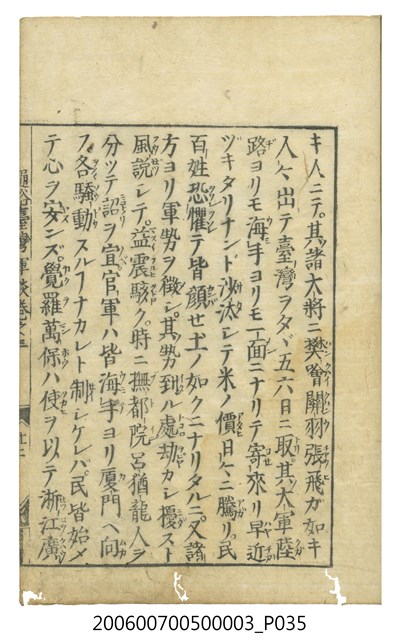 キ人ニテ。其諸大將ニ樊噲關羽張飛ガ如キ
人々出テ臺灣ヲタヾ五六日ニ取。其大軍陸
路ヨリモ海手ヨリモ一面ニナリテ寄來リ早近
ヅキタリナンド沙汰シテ米ノ價日々ニ騰リ。民
百姓恐懼テ皆顔セ土ノ如クニナリタルニ。又諸
方ヨリ軍勢ヲ徴シ。其勢到ル處劫カシ擾スト
風説シテ。益震駭ク。時ニ撫都院呂猶龍人ヲ
分ツテ詔ヲ宜官軍ハ皆海手ヨリ厦門ヘ向
フ。各騷動スルフナカレト制シケレバ。民皆始メ
テ心ヲ安ンズ。覺羅萬保ハ使ヲ以テ浙江廣
臺灣軍談卷之三
200600700500003_P035